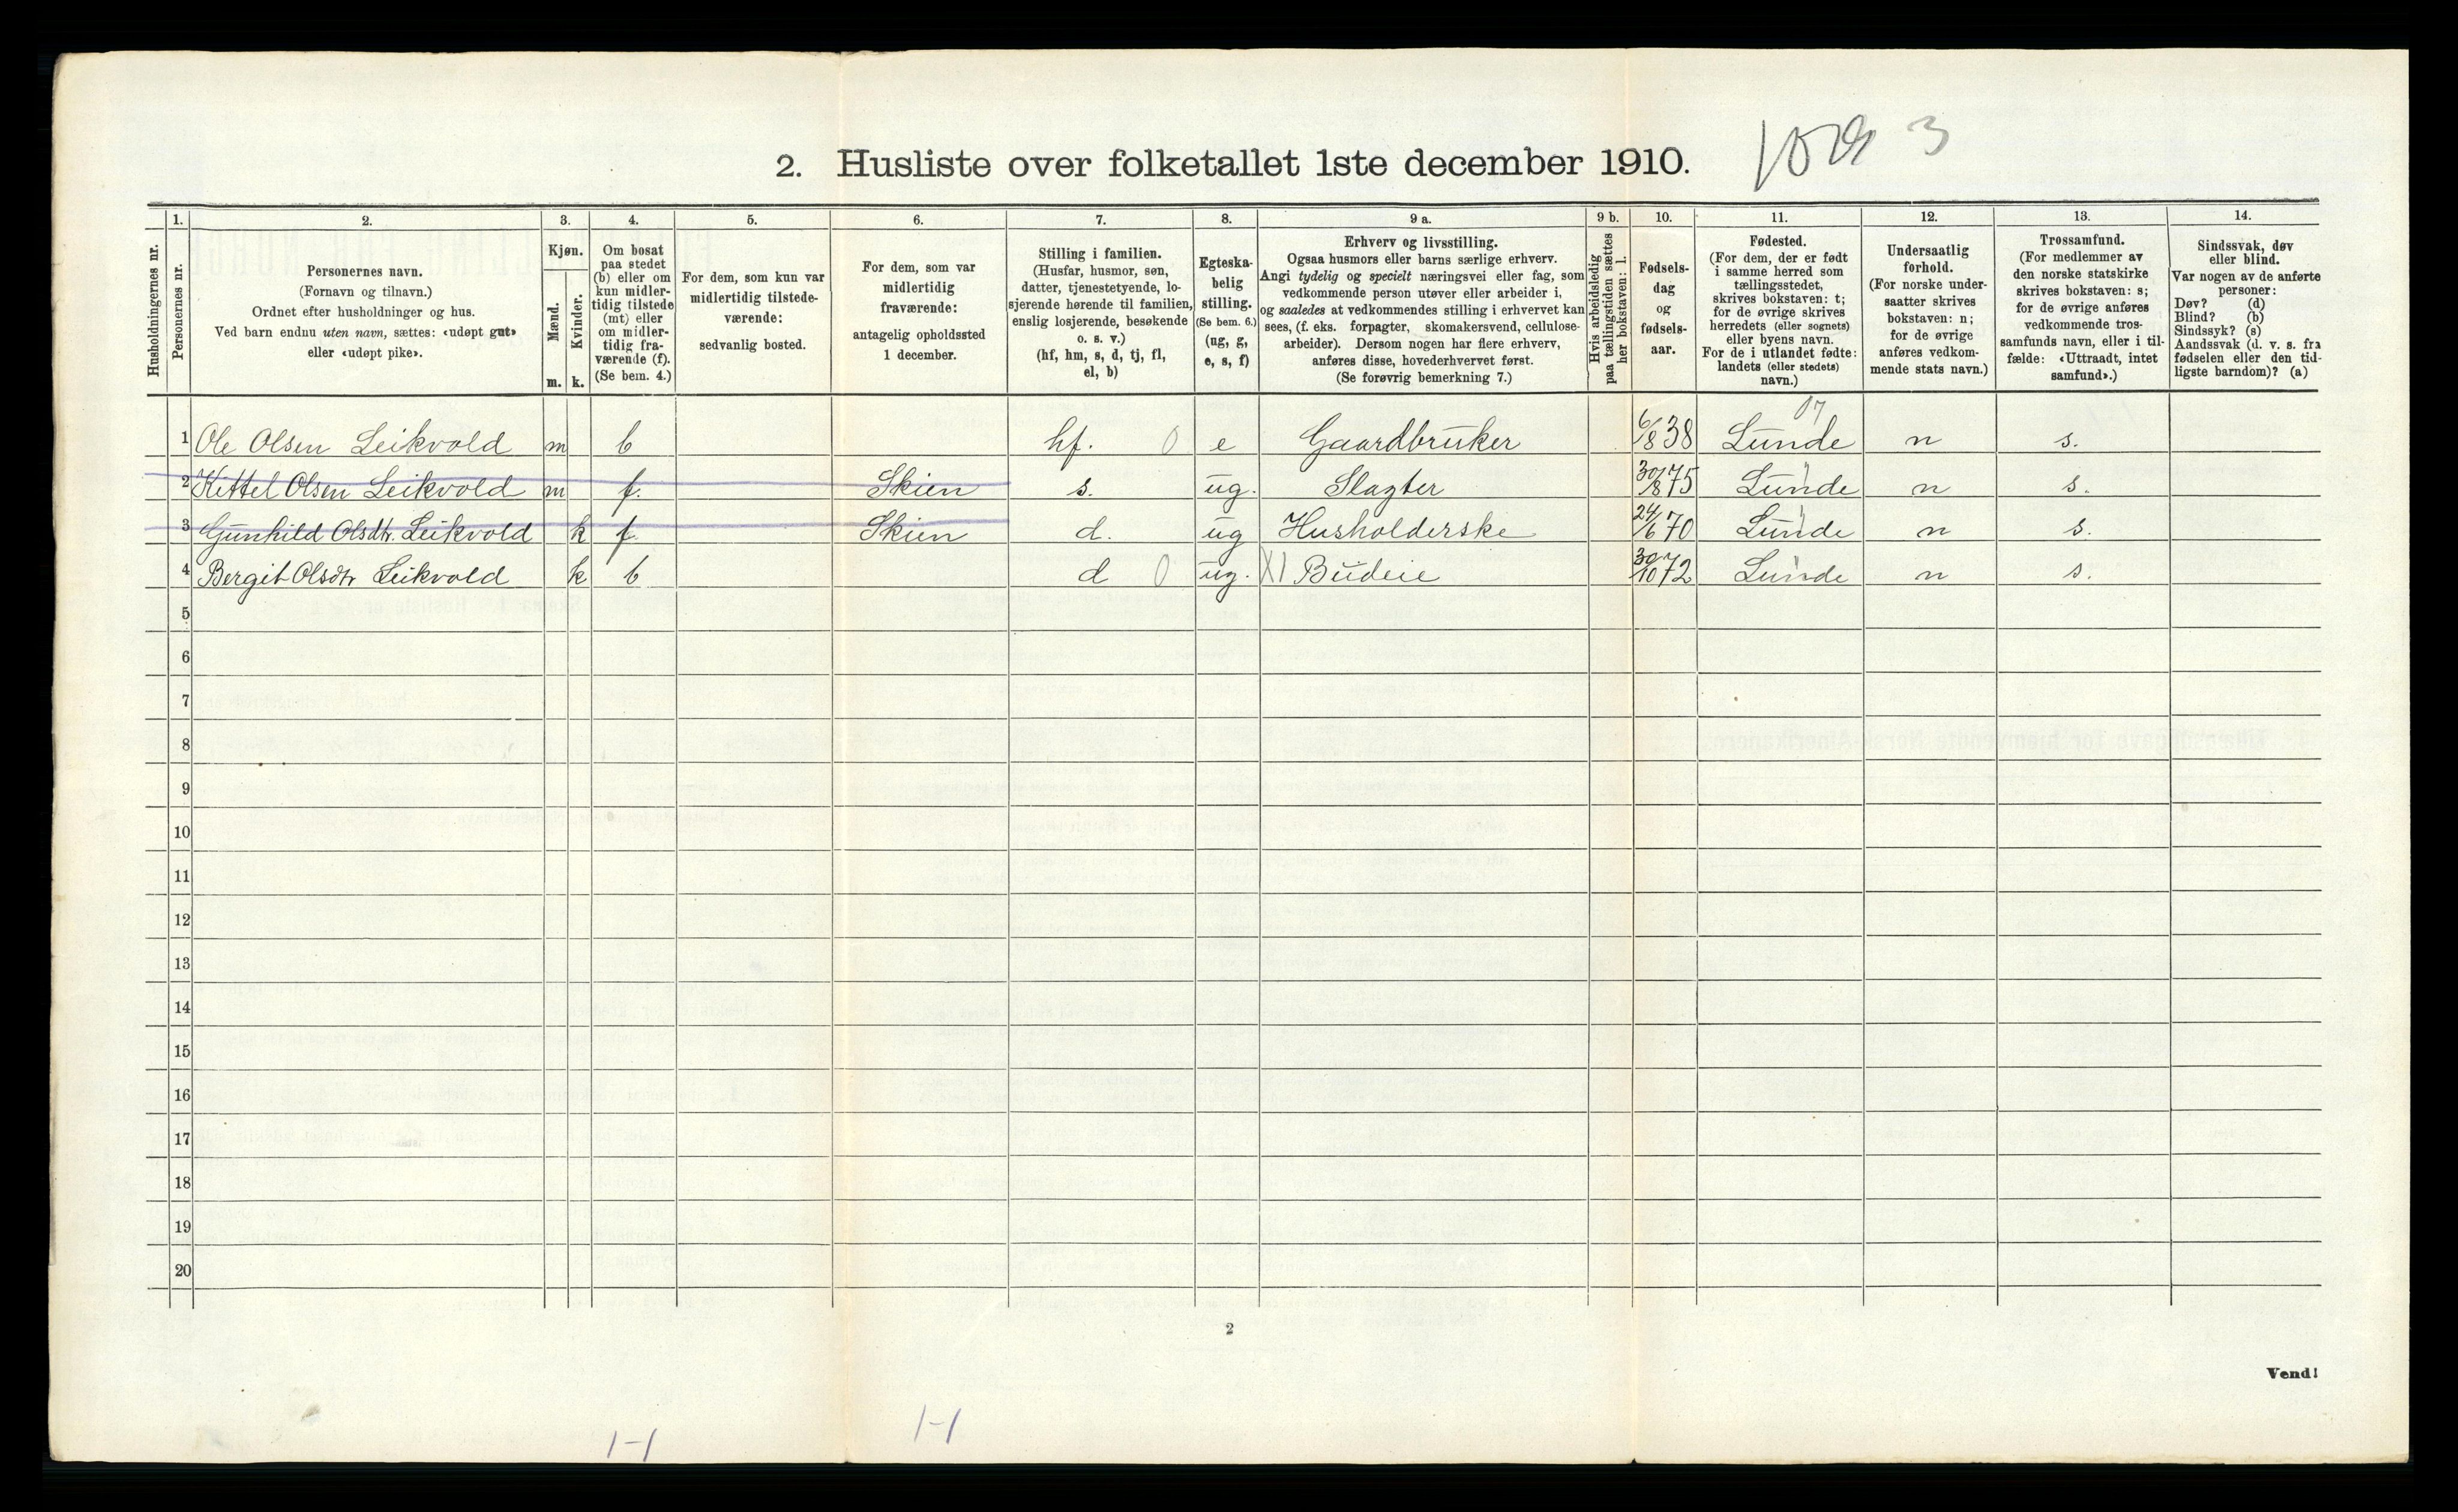 2. Husliste over folketallet 1ste december 1910. 3
Husholdningernes nr.
1. Personernes nr.
2. Personernes navn.
(Fornavn og tilnavn.)
Ordnet efter husholdninger og hus.
Ved barn endnu uten navn, sættes: «udøpt gut»
eller «udøpt pike».
3. Kjøn.
Mænd. m.
Kvinder. k.
4. Om bosat
paa stedet
(b) eller om
kun midler-
tidig tilstede
(mt) eller
om midler-
tidig fra-
værende (f).
(Se bem. 4.)
5. For dem, som kun var
midlertidig tilstede-
værende:
sedvanlig bosted.
6. For dem, som var
midlertidig
fraværende:
antagelig opholdssted
1 december.
7. Stilling i familien.
(Husfar, husmor, søn,
datter, tjenestetyende, lo-
sjerende hørende til familien,
enslig losjerende, besøkende
o. s. v.)
(hf, hm, s, d, tj, fl,
el, b)
8. Egteska-
belig
stilling.
(Se bem. 6.)
(ug, g,
e, s, f)
9 a. Erhverv og livsstilling.
Ogsaa husmors eller barns særlige erhverv.
Angi tydelig og specielt næringsvei eller fag, som
vedkommende person utøver eller arbeider i,
og saaledes at vedkommendes stilling i erhvervet kan
sees, (f. eks. forpagter, skomakersvend, cellulose-
arbeider). Dersom nogen har flere erhverv,
anføres disse, hovederhvervet først.
(Se forøvrig bemerkning 7.)
9 b. Hvis arbeidsledig
paa tællingstiden sættes
her bokstaven: l.
10. Fødsels-
dag
og
fødsels-
aar.
11. Fødested.
(For dem, der er født
i samme herred som
tællingsstedet,
skrives bokstaven: t;
for de øvrige skrives
herredets (eller sognets)
eller byens navn.
For de i utlandet fødte:
landets (eller stedets)
navn.)
12. Undersaatlig
forhold.
(For norske under-
saatter skrives
bokstaven: n;
for de øvrige
anføres vedkom-
mende stats navn.)
13. Trossamfund.
(For medlemmer av
den norske statskirke
skrives bokstaven: s;
for de øvrige anføres
vedkommende tros-
samfunds navn, eller i til-
fælde: «Uttraadt, intet
samfund».)
14. Sindssvak, døv
eller blind.
Var nogen av de anførte
personer:
Døv? (d)
Blind? (b)
Sindssyk? (s)
Aandssvak (d. v. s. fra
fødselen eller den tid-
ligste barndom)? (a)
07
1 Ole Olsen Leikvold m b hf. 0 e Gaardbruker 6/8 38 Lunde n s.
2 Kittel Olsen Leikvold m f. Skien s. ug. Slagter 30/8 75 Lunde n s.
3 Gunhild Olsdtr. Leikvold k f. Skien d. ug Husholderske 24/6 70 Lunde n s.
4 Bergit Olsdtr Leikvold k b d 0 ug. XI Budeie 30/10 72 Lunde n s.
5
6
7
8
9
10
11
12
13
14
15
16
17
18
19
20
2
Vend!
1-1
1-1